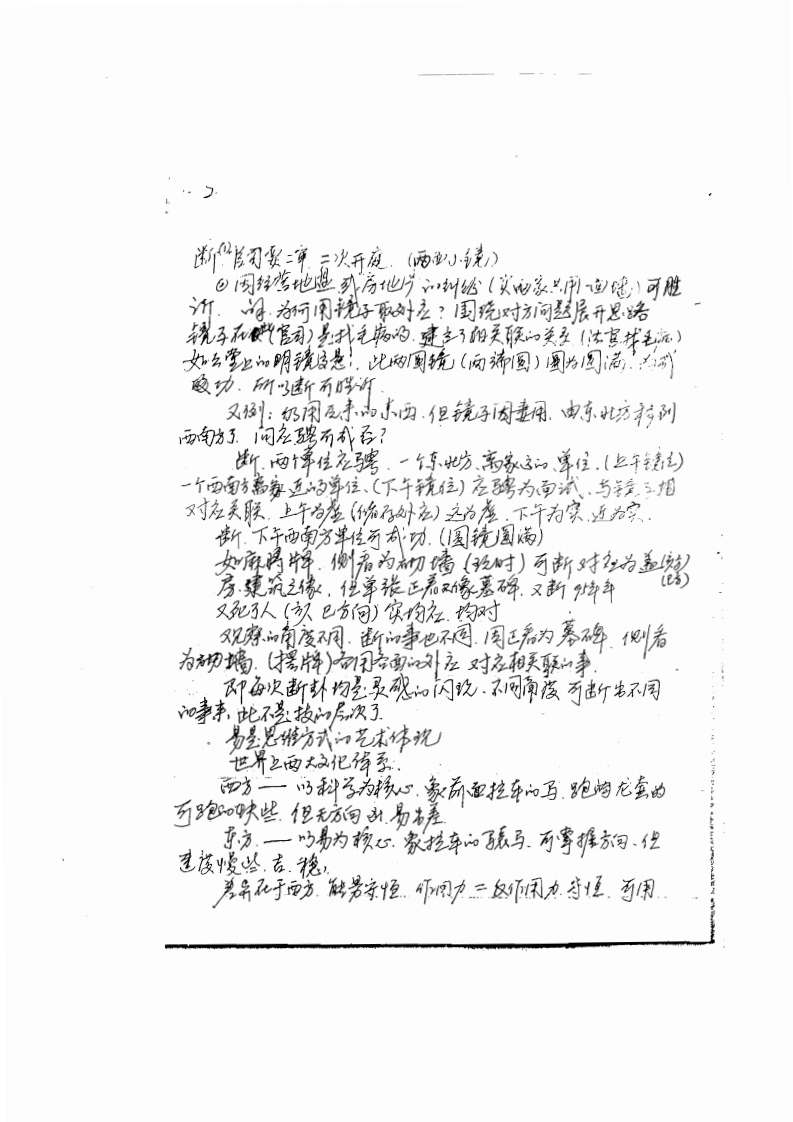 2.
断(1)官司要二审 二次开庭.(两面小镜)
② 因经营地盘或房地产的纠纷(实两家共用一面墙)可胜
诉. 问:为何用镜子取对应?围绕对方问题展开思路
镜子在此(官司)是找毛病的.建立了相关联的关系(法官找毛病)
如公堂上的明镜高悬!此两圆镜(两端圆)圆为圆满.为成
功.所以断可胜诉.
又例:仍用反来的东西.但镜子因妻用.由东北方移到
西南方了.问应聘可成否?
断.两个单位应聘.一个东北方.离家远的单位.(上午镜位)
一个西南方离家近的单位.(下午镜位)应聘为面试.与镜子相
对应关联.上午为虚(储存外应)远为虚.下午为实.近为实.
断.下午西南方单位可成功.(圆镜圆满)
如麻将牌.侧看为砌墙(玩时)可断对应为盖
房.建筑之像.但单张正看又像墓碑.又断95年
又死了人(亥巳方向)实均应.均对
观察的角度不同.断的事也不同.因正看为墓碑.侧看
为砌墙.(摆牌)各用各面的外应 对应相关联的事.
即每次断卦均是灵感的闪现.不同角度可断出不同
的事来.此不是技的层次了.
易是思维方式的艺术体现
世界上两大文化体系.
西方——以科学为核心.象前面拉车的马.跑的龙套的
可跑的快些.但无方向 易出差
东方.——以易为核心.象拉车的辕马.可掌握方向.但
速度慢些.古.稳.
差异在于西方.能量守恒.作用力=反作用力.守恒.可用